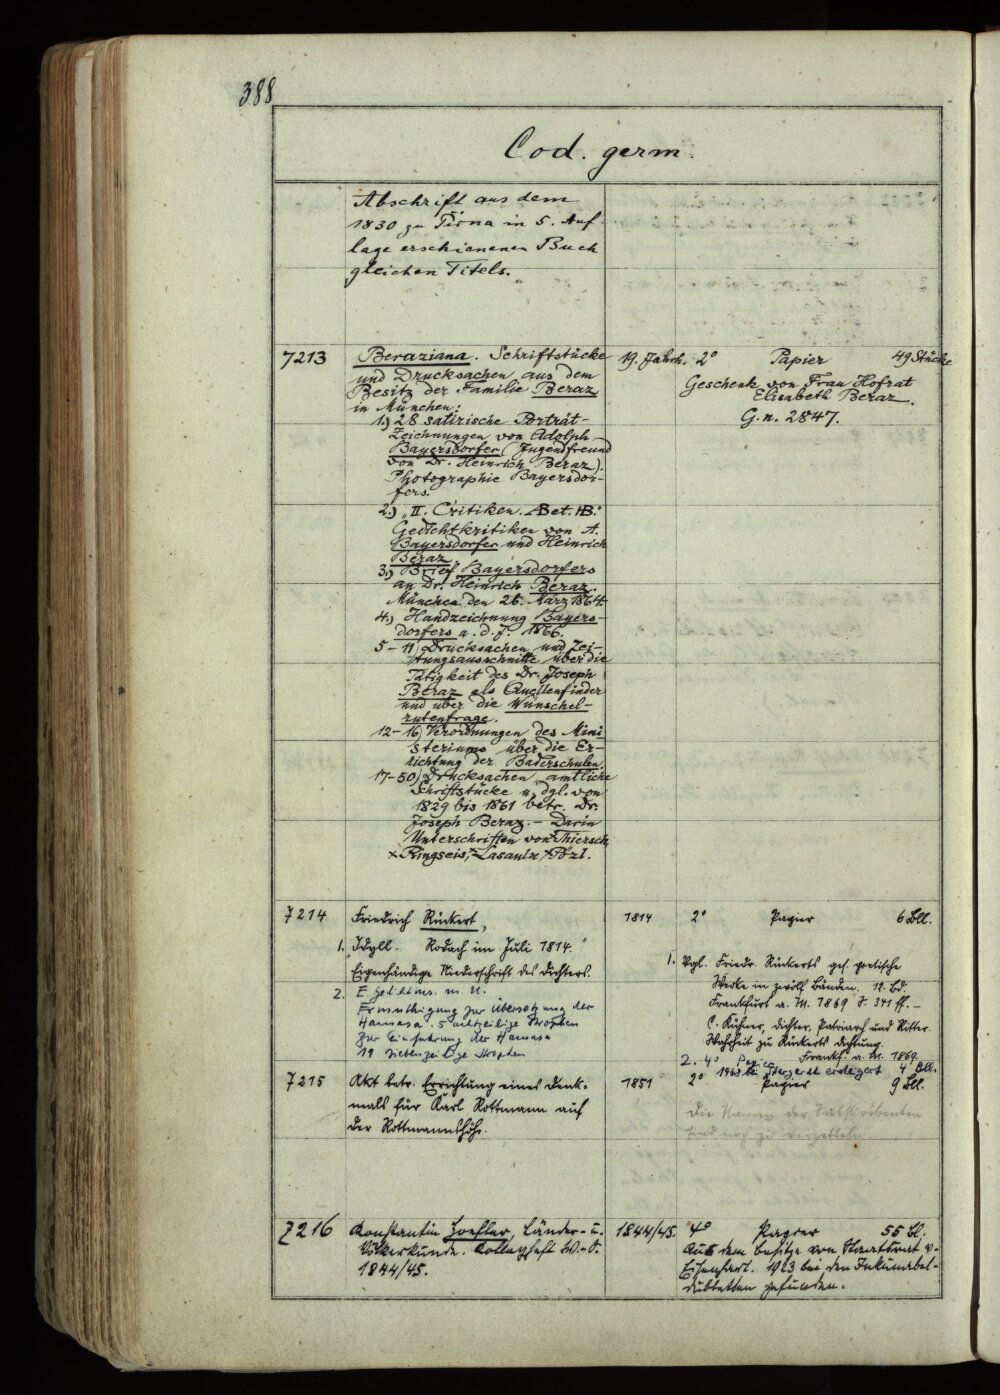 388
Cod. germ.
Abschrift aus dem
1830 zu Pirna in 5. Auf-
lage erschienenen Buch
gleichen Titels.
7213 Beraziana. Schriftstücke 19. Jahrh. 2° Papier 49 Stücke
und Drucksachen aus dem Geschenk von Frau Hofrat
Besitz der Familie Beraz Elisabeth Beraz.
in München: G.n. 2847.
1.) 28 satirische Porträt-
Zeichnungen von Adolph
Bayersdorfer (Jugendfreund
von Dr. Heinrich Beraz).
Photographie Bayersdor-
fers.
2.) „II. Critiken. Bet. B."
Gedichtkritiken von A.
Bayersdorfer und Heinrich
Beraz.
3.) Brief Bayersdorfers
an Dr. Heinrich Beraz.
München den 26. März 1864.
4.) Handzeichnung Bayers-
dorfers a. d. J. 1866.
5-11) Drucksachen und Zei-
tungsausschnitte über die
Tätigkeit des Dr. Joseph
Beraz als Quellenfinder
und über die Wünschel-
rutenfrage.
12-16) Verordnungen des Mini
steriums über die Er-
richtung der Baderschulen.
17-50) Drucksachen amtliche
Schriftstücke u. dgl. von
1829 bis 1861 betr. Dr.
Joseph Beraz. — Darin
Unterschriften von Thiersch,
× Ringseis, × Lasaulx, × Pözl.
7214 Friedrich Rückert, 1814 2° Papier 6 Bll.
1. „Idyll. Rodach im Juli 1814."
Eigenhändige Niederschrift des Dichters.
1. Vgl. Friedr. Rückerts ges. poetische
Werke in zwölf Bänden. 12. Bd.
Frankfurt a. M. 1869 S. 341 ff. —
C. Kühner, Dichter, Patriarch und Ritter.
Wahrheit zu Rückerts Dichtung.
Frankf. a. M. 1869.
2. E
Ermuthigung zur Übersetzung der
Hamasa. 5 achtzeilige Strophen
Zur Einführung der Hamasa
19 siebenzeilige Strophen
2. 4° Papier 4 Bll.
1963 bei ersteigert
7215 Akt betr. Errichtung eines Denk- 1851 2° Papier 9 Bll.
mals für Karl Rottmann auf
der Rottmannshöhe.
Die Namen der Subskribenten
sind noch zu verzetteln.
7216 Konstantin Hoefler, Länder- u. 1844/45. 4° Papier 55 Bl.
Völkerkunde. Kollegheft W.-S.
1844/45.
Aus dem Besitze von Staatsrat v.
Eisenhart. 1923 bei den Inkunabel-
dubletten gefunden.